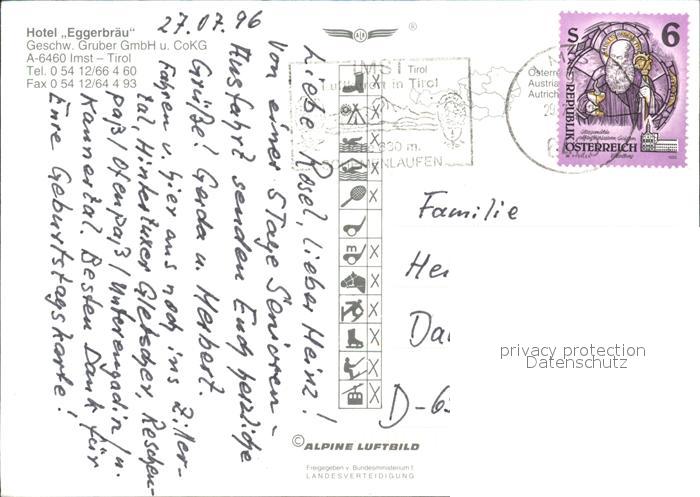 Hotel „Eggerbräu"
Geschw. Gruber GmbH u. CoKG
A-6460 Imst – Tirol
Tel. 0 54 12/66 4 60
Fax 0 54 12/64 4 93
27.07.96
Liebe Rosel, lieber Heinz!
Von einer 5 Tage Senioren-
Ausfahrt senden Euch herzliche
Grüße! Gerda u. Herbert.
Fahren v. hier aus noch ins Ziller-
tal, Hintertuxer Gletscher, Reschen-
paß/Ofenpaß/Unterengadin/u.
Kaunertal. Besten Dank für
Eure Geburtstagskarte!
IMST Tirol
in Tirol
m.
LAUFEN
Österre
Austria
Autrich
S 6
REPUBLIK
ÖSTERREICH
m
Familie
He
Da
D-6
privacy protection
Datenschutz
© ALPINE LUFTBILD
Freigegeben v. Bundesministerium f.
LANDESVERTEIDIGUNG